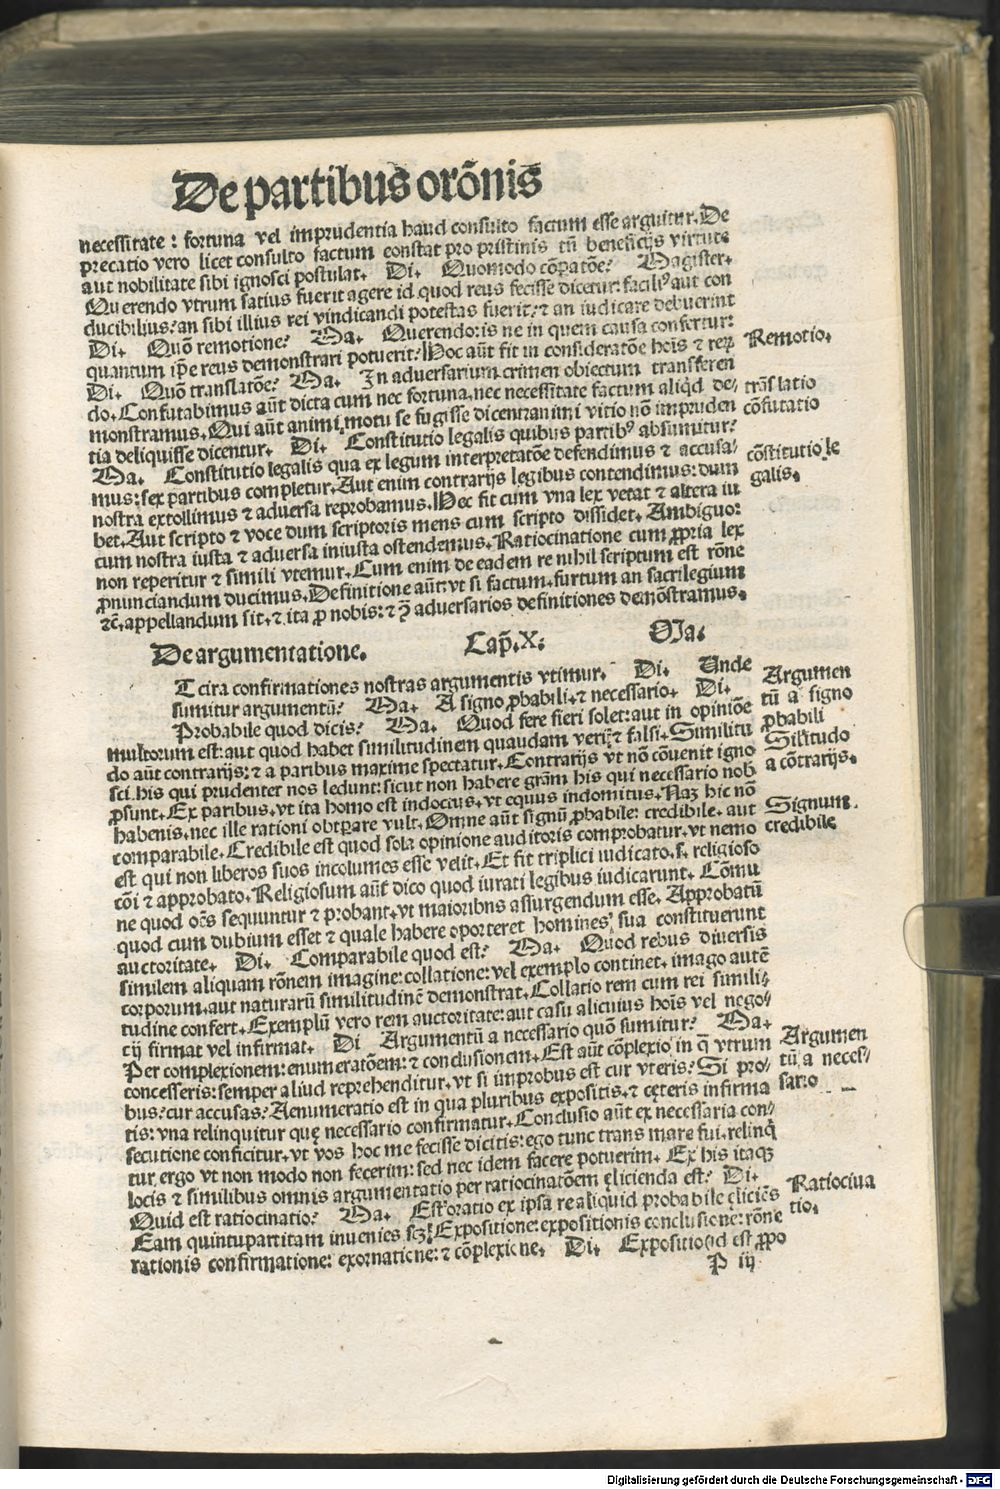 De partibus orōnis
necessitate: fortuna vel imprudentia haud consulto factum esse arguitur. De
precatio vero licet consulto factum constat pro pristinis tñ beneficijs virtute
aut nobilitate sibi ignosci postulat. Di. Quomodo cōpatōe? Magister.
Querendo vtrum satius fuerit agere id quod reus fecisse dicetur: facili⁹ aut con
ducibilius? an sibi illius rei vindicandi potestas fuerit: ⁊ an iudicare debuerint
Di. Quō remotione? Ma. Querendo: is ne in quem causa confertur:
quantum ip̄e reus demonstrari potuerit? Hoc aūt fit in consideratōe hoīs ⁊ reꝝ
Remotio.
Di. Quō translatōe? Ma. In adversarium crimen obiectum transferen
do. Confutabimus aūt dicta cum nec fortuna, nec necessitate factum aliqd de⸗
trās latio
monstramus. Qui aūt animi motu se fugisse dicent animi vitio nō impruden
cōfutatio
tia deliquisse dicentur. Di. Constitutio legalis quibus partib⁹ absumitur?
Ma. Constitutio legalis qua ex legum interpretatōe defendimus ⁊ accusa⸗
cōstitutio le
mus: sex partibus completur. Aut enim contrarijs legibus contendimus: dum
galis.
nostra extollimus ⁊ adversa reprobamus. Hec fit cum vna lex vetat ⁊ altera iu
bet. Aut scripto ⁊ voce dum scriptoris mens cum scripto dissidet. Ambiguo:
cum nostra iusta ⁊ adversa iniusta ostendemus. Ratiocinatione cum ꝓpria lex
non reperitur ⁊ simili vtemur. Cum enim de eadem re nihil scriptum est rōne
ꝓnunciandum ducimus. Definitione aūt: vt si factum, furtum an sacrilegium
⁊c̄. appellandum sit. ⁊ ita ꝓ nobis: ⁊ ꝯ adversarios definitiones demōstramus.
De argumentatione. Cap̄. X. DIa.
T cira confirmationes nostras argumentis vtimur. Di. Unde
Argumen
sumitur argumentū? Ma. A signo ꝓbabili. ⁊ necessario. Di.
tū a signo
Probabile quod dicis? Ma. Quod fere fieri solet: aut in opiniōe
ꝓbabili
multorum est: aut quod habet similitudinem quandam veri ⁊ falsi. Similitu
Silitudo
do aūt contrarijs: ⁊ a paribus maxime spectatur. Contrarijs vt nō cōuenit igno
a cōtrarijs.
sci. his qui prudenter nos ledunt: sicut non habere grām his qui necessario nob̄
ꝓsunt. Ex paribus. vt ita homo est indoctus, vt equus indomitus. Naz hic nō
Signum.
habenis, nec ille rationi obtꝑare vult. Omne aūt signū ꝓbabile: credibile. aut
credibile
comparabile. Credibile est quod sola opinione auditoris comprobatur. vt nemo
est qui non liberos suos incolumes esse velit. Et fit triplici iudicato. s. religioso
cōi ⁊ approbato. Religiosum aūt dico quod iurati legibus iudicarunt. Cōmu
ne quod oēs sequuntur ⁊ probant. vt maioribns assurgendum esse. Approbatū
quod cum dubium esset ⁊ quale habere oporteret homines, sua constituerunt
auctoritate. Di. Comparabile quod est? Ma. Quod rebus diuersis
similem aliquam rōnem imagine: collatione: vel exemplo continet. imago autē
corporum. aut naturarū similitudinē demonstrat. Collatio rem cum rei simili⸗
tudine confert. Exemplū vero rem auctoritate: aut casu alicuius hoīs vel nego⸗
cij firmat vel infirmat. Di Argumentū a necessario quō sumitur? Ma.
Argumen
Per complexionem: enumeratōem: ⁊ conclusionem. Est aūt cōplexio in q̄ vtrum
tū a neces⸗
concesseris: semper aliud reprehenditur. vt si improbus est cur vteris? Si pro⸗
sario
bus? cur accusas? Aenumeratio est in qua pluribus expositis. ⁊ cęteris infirma
tis: vna relinquitur quę necessario confirmatur. Conclusio aūt ex necessaria con⸗
secutione conficitur. vt vos hoc me fecisse dicitis: ego tunc trans mare fui. relinq̄
tur ergo vt non modo non fecerim: sed nec idem facere potuerim. Ex his itaqꝫ
locis ⁊ similibus omnis argumentatio per ratiocinatōem ęlicienda est? Di.
Ratiocina
Quid est ratiocinatio? Ma. Est oratio ex ipsa re aliquid probabile ęliciēs
tio.
Eam quintupartitam invenies scꝫ Expositione: expositionis conclusione: rōne
rationis confirmatione: exornatione: ⁊ cōplexione. Di. Expositio (id est ꝓpo
P iij
Digitalisierung gefördert durch die Deutsche Forschungsgemeinschaft - DFG